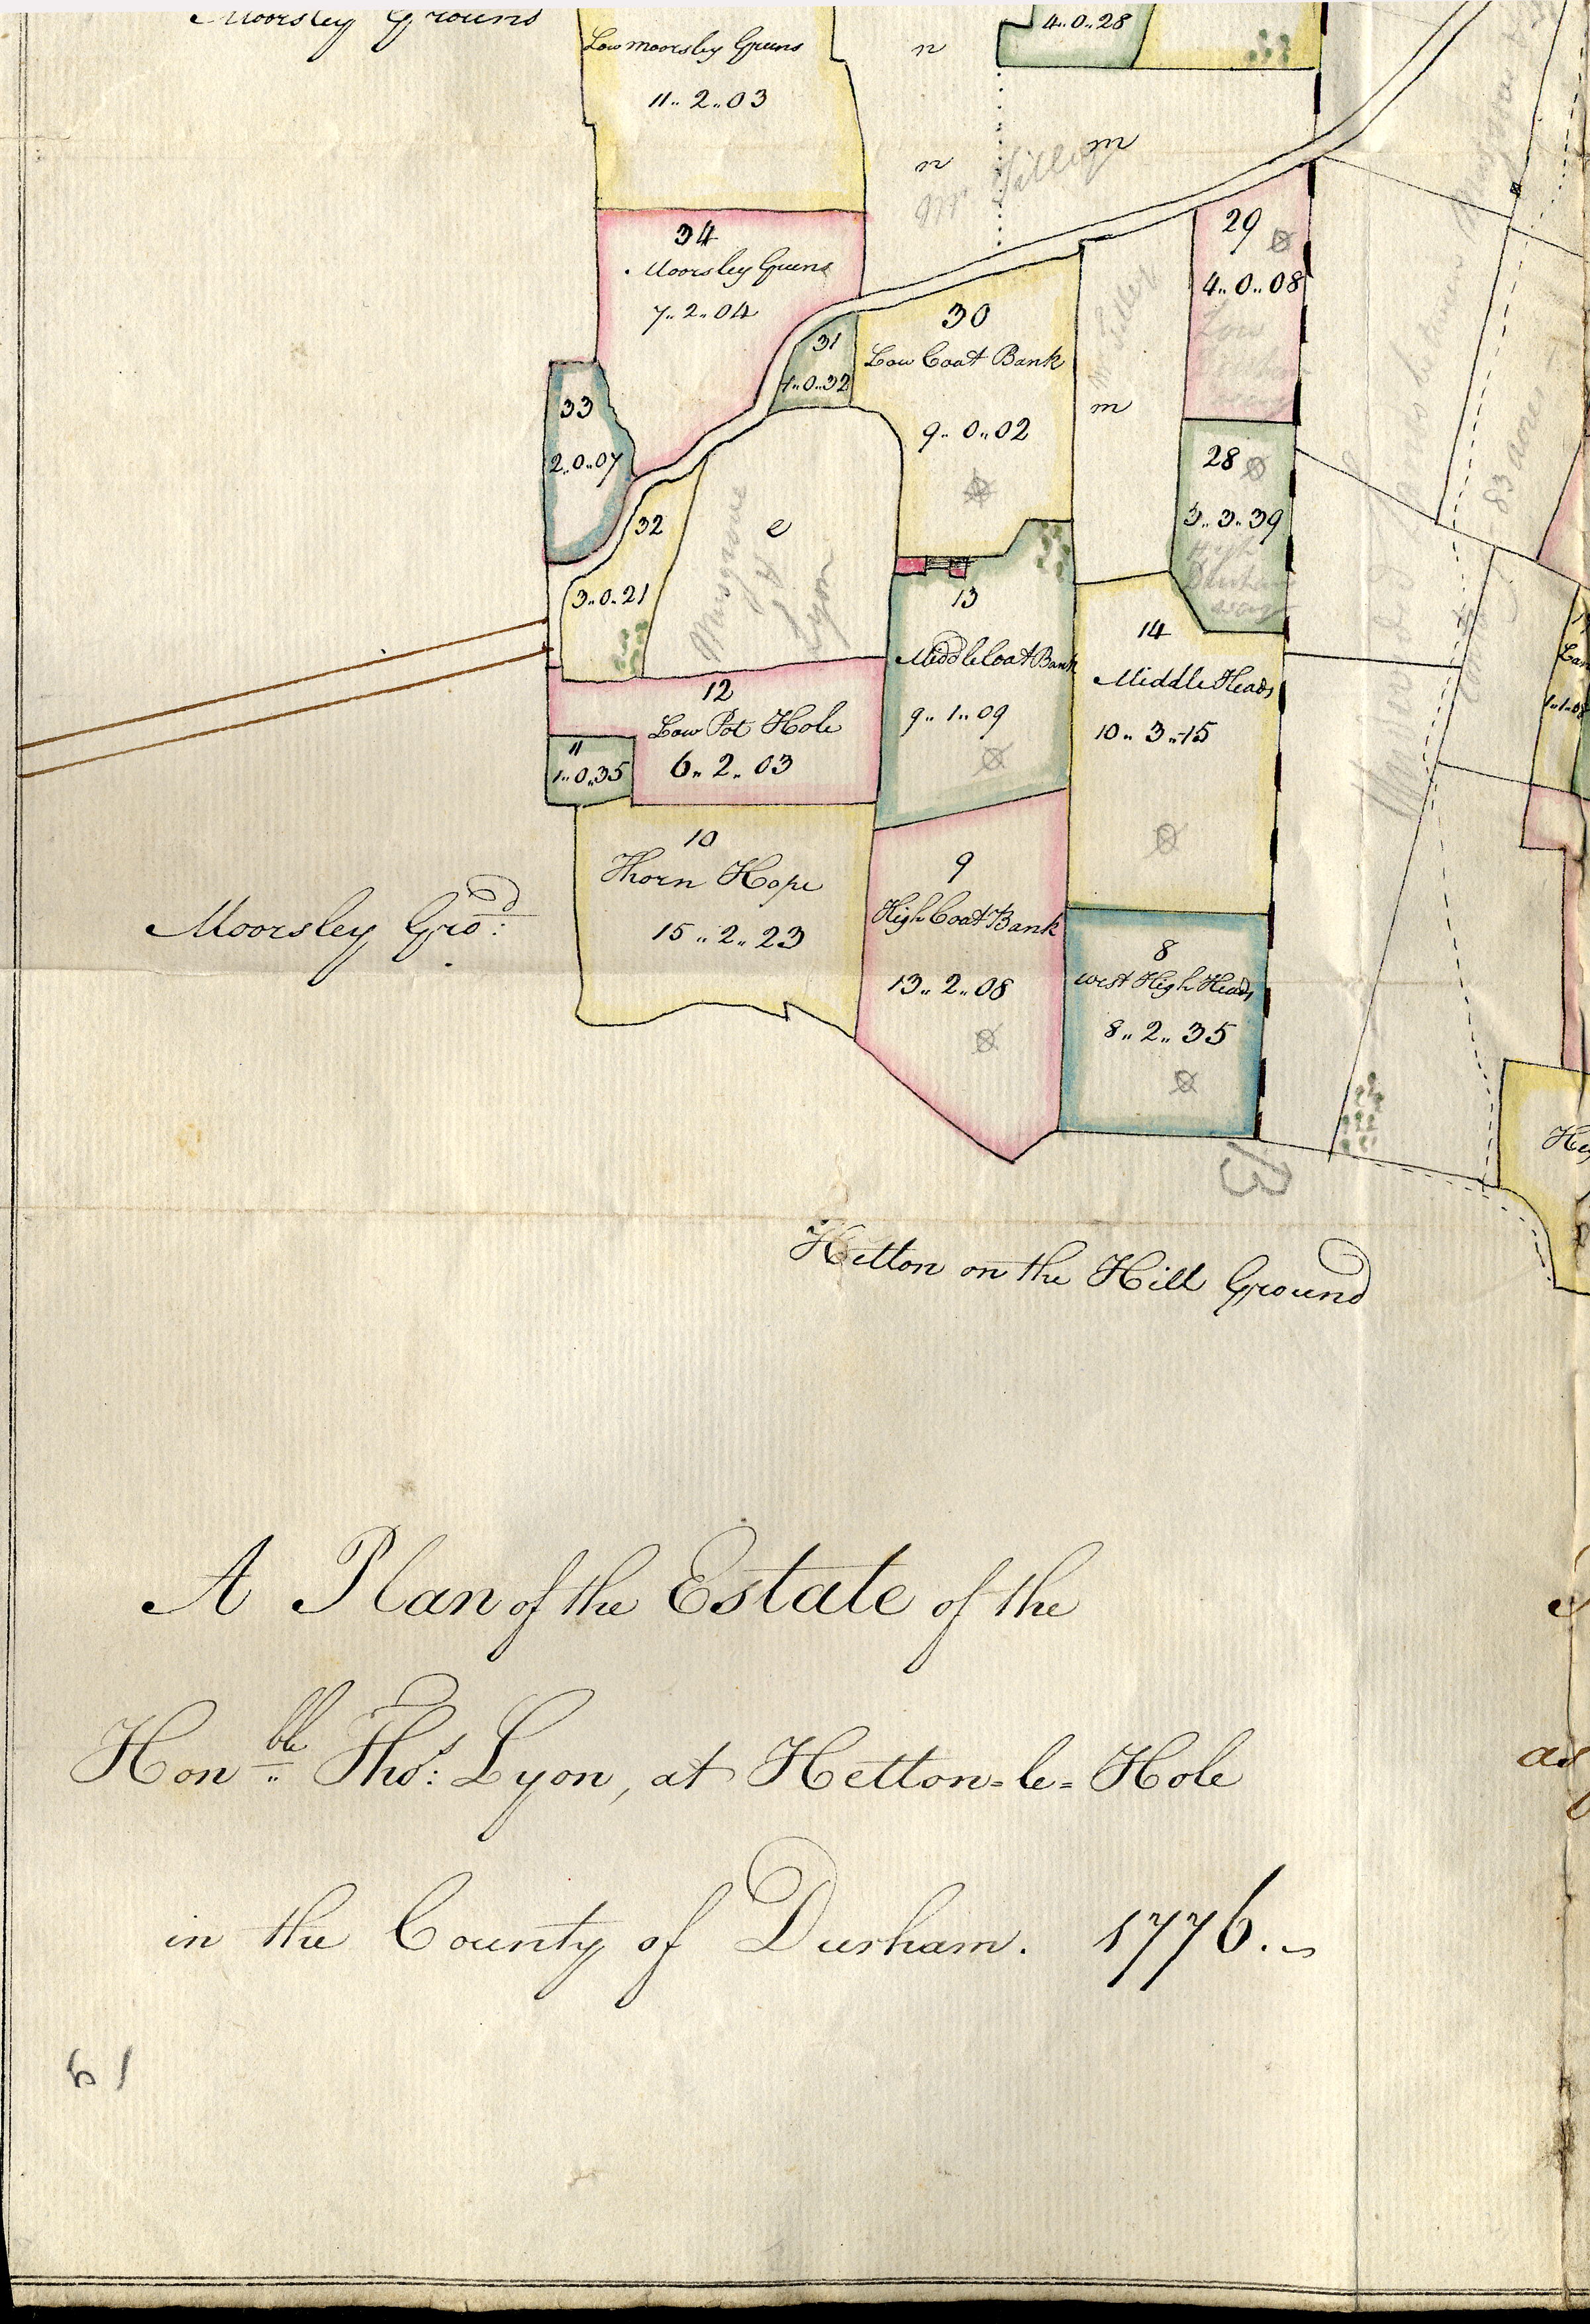 Moorsley Ground
Low moorsley Greens
11.. 2..03
n
4..0..28
n
m
Mr
34
Moorsley Greens
7..2..04
31
1..0..32
30
Low Coat Bank
9..0..02
m
29
4..0..08
Low
28
3..3..39
High
Durham
33
2..0..07
32
3..0..21
e
Musgrave
&
Lyon
13
Middle Coat Bank
9..1..09
14
Middle Heads
10..3..15
12
Low Pot Hole
6..2..03
11
1..0..35
10
Thorn Hope
15..2..23
9
High Coat Bank
13..2..08
8
West High Heads
8..2..35
83 acres
Moorsley Gro:d
B
Hetton on the Hill Ground
A Plan of the Estate of the
Hon:ble Tho:s Lyon, at Hetton=le=Hole
in the County of Durham. 1776.
61